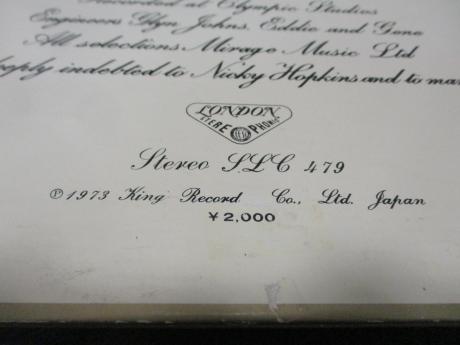 Recorded at Olympic Studios
Engineers Glyn Johns, Eddie and Gene
All selections Mirage Music Ltd
deeply indebted to Nicky Hopkins and to ma
LONDON
STEREO PHONIC
Stereo SLC 479
Ⓟ 1973 King Record Co., Ltd. Japan
¥2,000